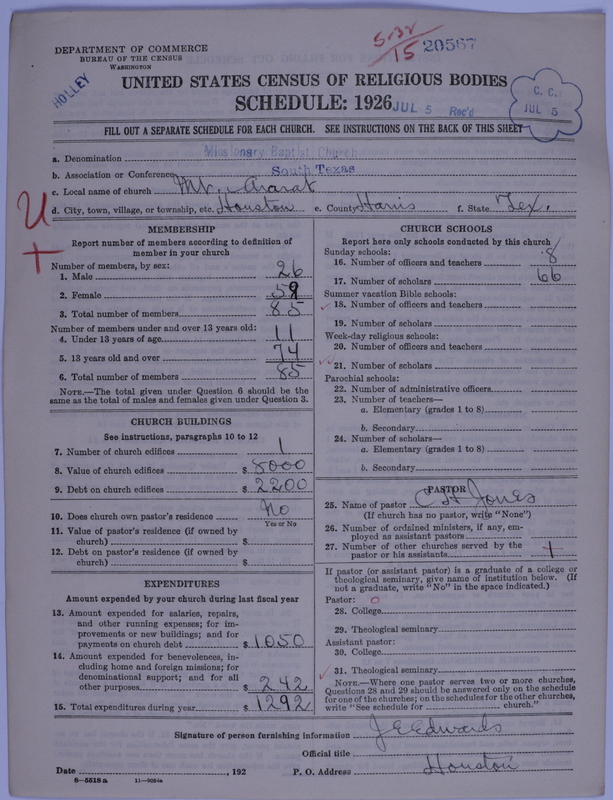 5-32
15
20567
DEPARTMENT OF COMMERCE
BUREAU OF THE CENSUS
WASHINGTON
HOLLEY
UNITED STATES CENSUS OF RELIGIOUS BODIES
SCHEDULE: 1926
JUL 5 Rec'd
C. C.
JUL 5
FILL OUT A SEPARATE SCHEDULE FOR EACH CHURCH. SEE INSTRUCTIONS ON THE BACK OF THIS SHEET
a. Denomination Missionary Baptist Church
b. Association or Conference South Texas
c. Local name of church Mt. Ararat
d. City, town, village, or township, etc. Houston e. County Harris f. State Tex.
U
+
MEMBERSHIP
Report number of members according to definition of
member in your church
Number of members, by sex:
1. Male 26
2. Female 59
3. Total number of members 85
Number of members under and over 13 years old:
4. Under 13 years of age 11
5. 13 years old and over 74
6. Total number of members 85
NOTE.—The total given under Question 6 should be
same as the total of males and females given under Question 3.
CHURCH BUILDINGS
See instructions, paragraphs 10 to 12
7. Number of church edifices 1
8. Value of church edifices $ 8000
9. Debt on church edifices $ 2200
10. Does church own pastor's residence No
Yes or No
11. Value of pastor's residence (if owned by
church) $
12. Debt on pastor's residence (if owned by
church) $
EXPENDITURES
Amount expended by your church during last fiscal year
13. Amount expended for salaries, repairs,
and other running expenses; for im-
provements or new buildings; and for
payments on church debt $ 1050
14. Amount expended for benevolences, in-
cluding home and foreign missions; for
denominational support; and for all
other purposes $ 242
15. Total expenditures during year $ 1292
CHURCH SCHOOLS
Report here only schools conducted by this church
Sunday schools:
16. Number of officers and teachers 8
17. Number of scholars 66
Summer vacation Bible schools:
18. Number of officers and teachers
19. Number of scholars
Week-day religious schools:
20. Number of officers and teachers
21. Number of scholars
Parochial schools:
22. Number of administrative officers
23. Number of teachers—
a. Elementary (grades 1 to 8)
b. Secondary
24. Number of scholars—
a. Elementary (grades 1 to 8)
b. Secondary
PASTOR
25. Name of pastor C H Jones
(If church has no pastor, write "None")
26. Number of ordained ministers, if any, em-
ployed as assistant pastors
27. Number of other churches served by the
pastor or his assistants
If pastor (or assistant pastor) is a graduate of a college or
theological seminary, give name of institution below. (If
not a graduate, write "No" in the space indicated.)
Pastor: 0
28. College
29. Theological seminary
Assistant pastor:
30. College
31. Theological seminary
NOTE.—Where one pastor serves two or more churches,
Questions 28 and 29 should be answered only on the schedule
for one of the churches; on the schedules for the other churches,
write "See schedule for church."
Signature of person furnishing information J E Edwards
Official title
Date , 192 P. O. Address Houston
8—5518a 11—9054a